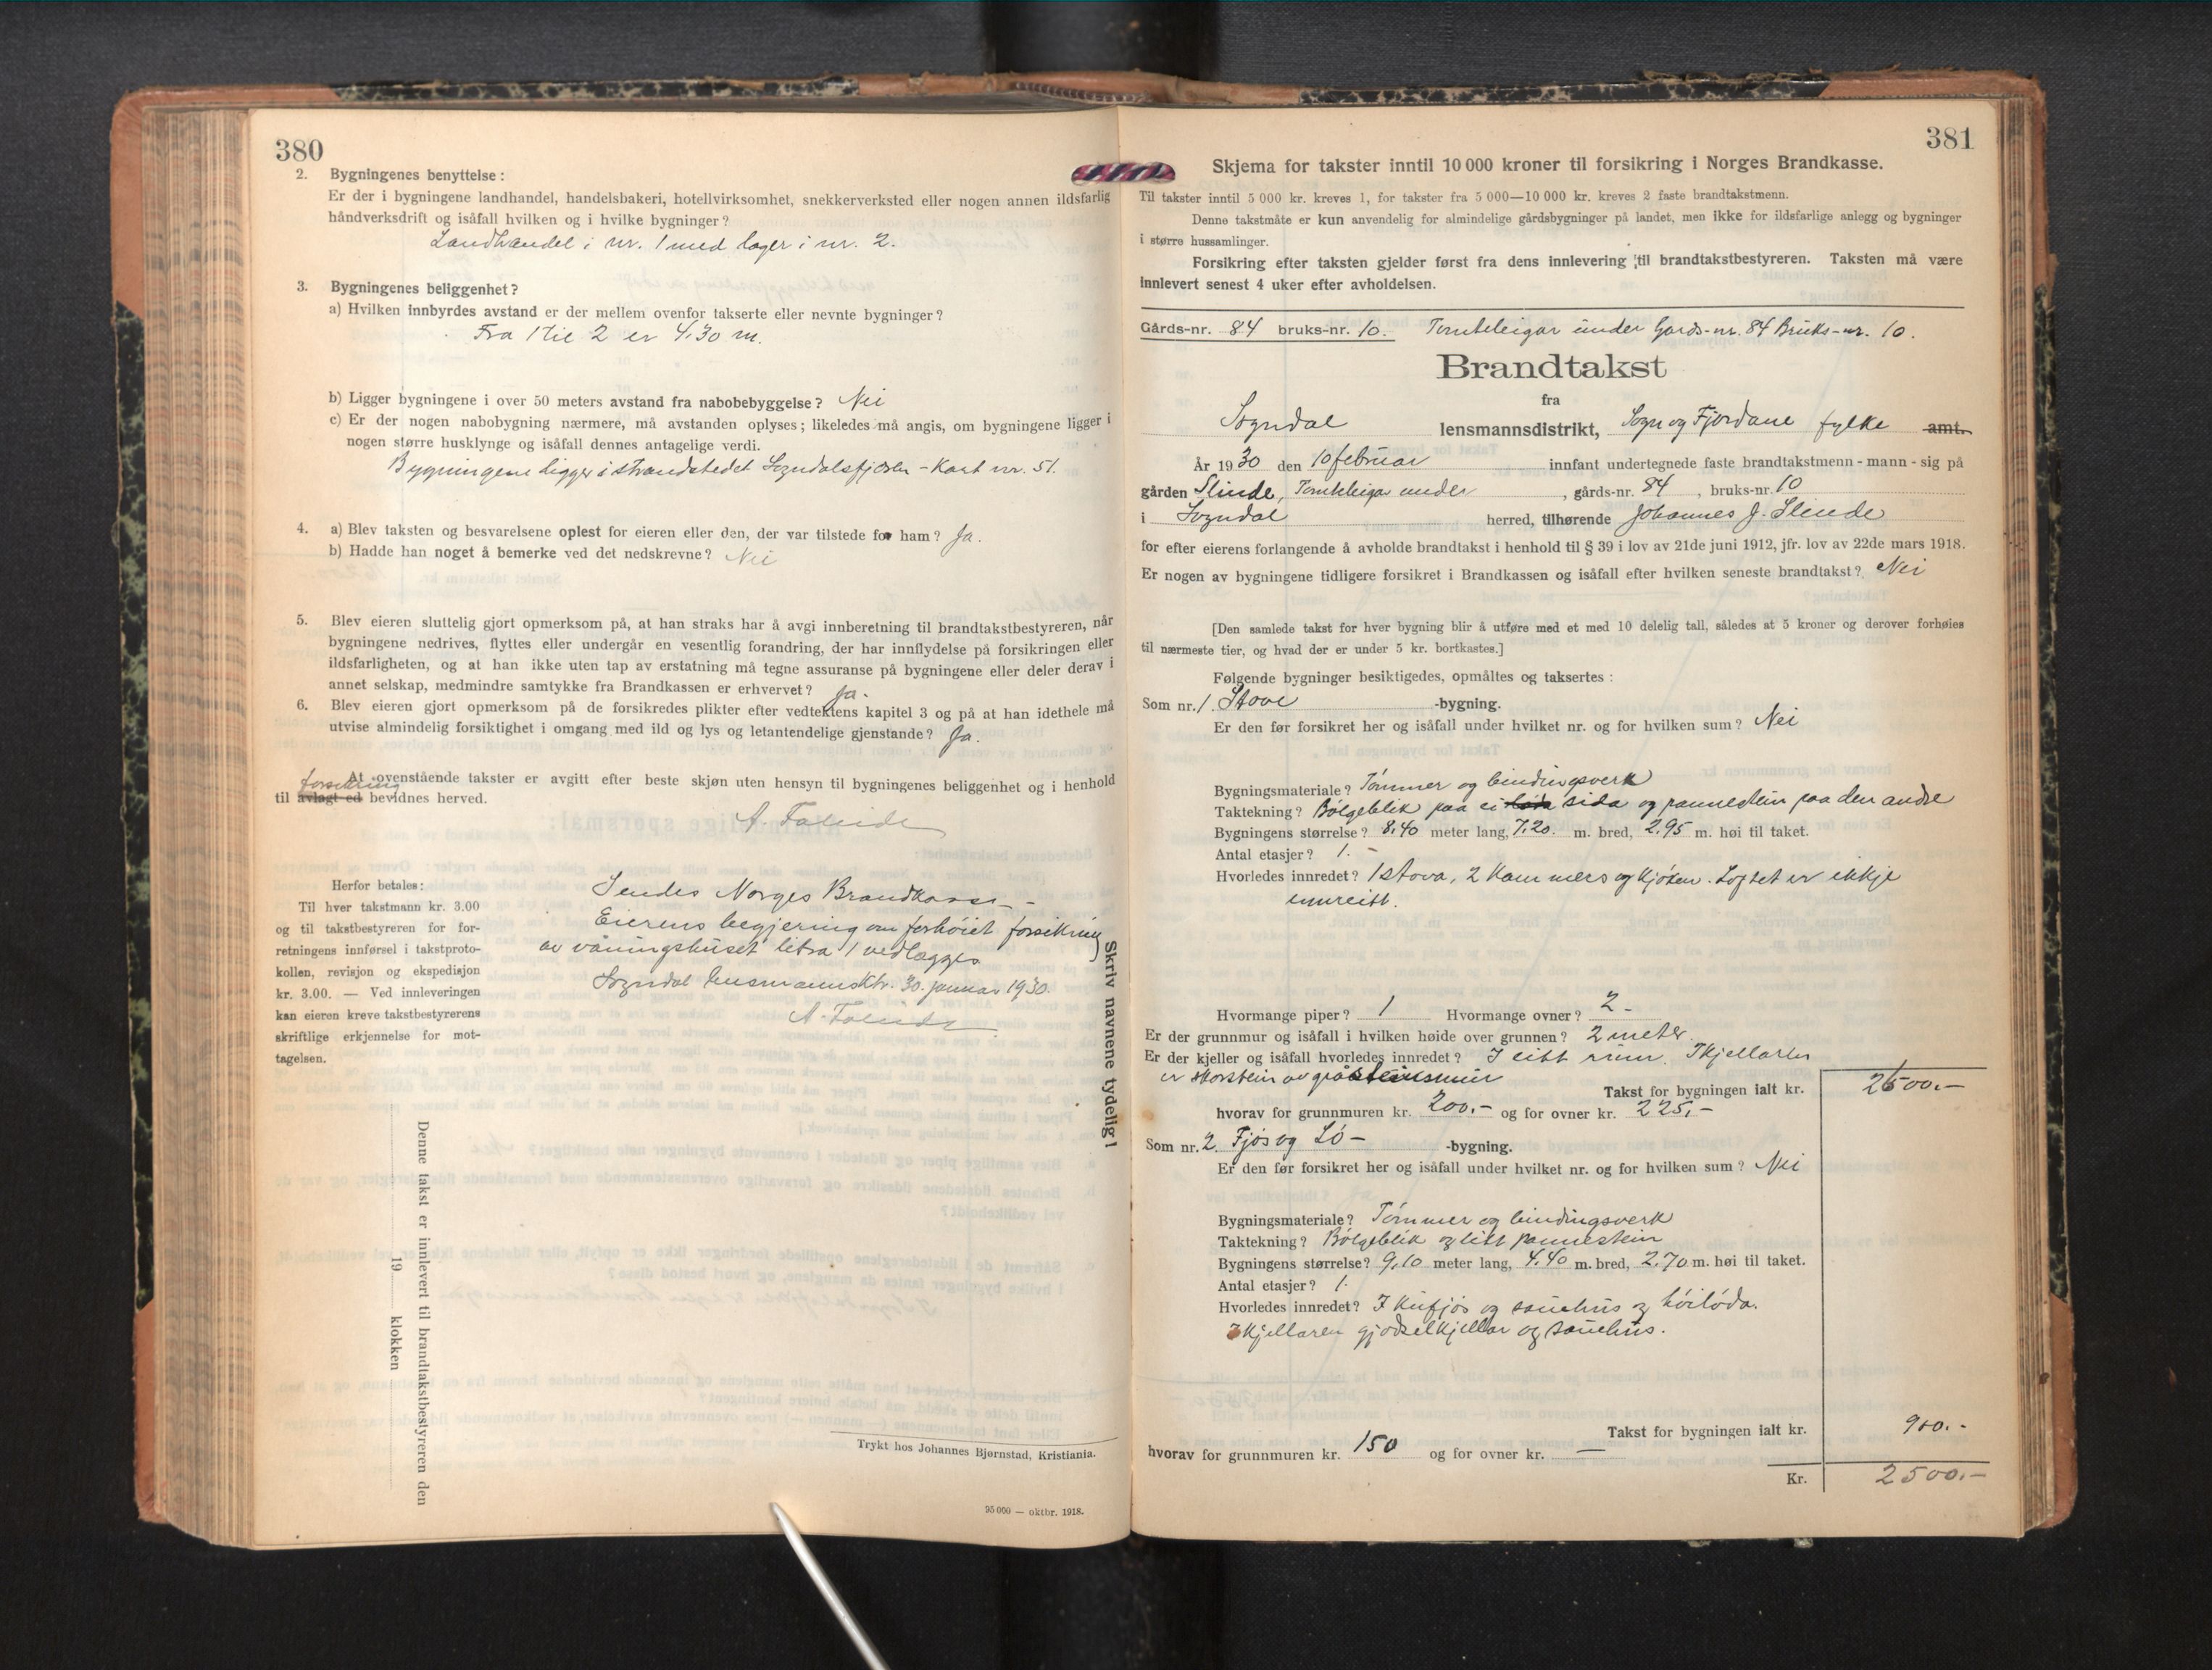 380
2. Bygningenes benyttelse :
Er der i bygningene landhandel, handelsbakeri, hotellvirksomhet, snekkerverksted eller nogen annen ildsfarlig
håndverksdrift og isåfall hvilken og i hvilke bygninger ?
Landhandel i nr. 1 med lager i nr. 2.
3. Bygningenes beliggenhet ?
a) Hvilken innbyrdes avstand er der mellem ovenfor takserte eller nevnte bygninger ?
Fra 1 til 2 er 4,30 m.
b) Ligger bygningene i over 50 meters avstand fra nabobebyggelse ? Nei
c) Er der nogen nabobygning nærmere, må avstanden oplyses ; likeledes må angis, om bygningene ligger i
nogen større husklynge og isåfall dennes antagelige verdi.
Bygningene ligger i strandstedet Sogndalsfjøren - Kart nr. 51.
4. a) Blev taksten og besvarelsene oplest for eieren eller den, der var tilstede for ham ? Ja.
b) Hadde han noget å bemerke ved det nedskrevne ? Nei
5. Blev eieren sluttelig gjort opmerksom på, at han straks har å avgi innberetning til brandtakstbestyreren, når
bygningene nedrives, flyttes eller undergår en vesentlig forandring, der har innflydelse på forsikringen eller
ildsfarligheten, og at han ikke uten tap av erstatning må tegne assuranse på bygningene eller deler derav i
annet selskap, medmindre samtykke fra Brandkassen er erhvervet ? Ja.
6. Blev eieren gjort opmerksom på de forsikredes plikter efter vedtektens kapitel 3 og på at han idethele må
utvise almindelig forsiktighet i omgang med ild og lys og letantendelige gjenstande ? Ja.
At ovenstående takster er avgitt efter beste skjøn uten hensyn til bygningenes beliggenhet og i henhold
forsikring
til avlagt ed bevidnes herved.
Herfor betales :
Til hver takstmann kr. 3.00
og til takstbestyreren for for-
retningens innførsel i takstproto-
kollen, revisjon og ekspedisjon
kr. 3.00. — Ved innleveringen
kan eieren kreve takstbestyrerens
skriftlige erkjennelse for mot-
tagelsen.
Sendes Norges Brandkasse -
Eierens begjering om forhöiet forsikring
av våningshuset litra 1 vedlægges
Sogndal lensmannsktr. 30. januar 1930.
Skriv navnene tydelig !
Denne takst er innlevert til brandtakstbestyreren den
19 klokken
Trykt hos Johannes Bjørnstad, Kristiania.
95 000 — oktbr. 1918.
381
Skjema for takster inntil 10 000 kroner til forsikring i Norges Brandkasse.
Til takster inntil 5 000 kr. kreves 1, for takster fra 5 000—10 000 kr. kreves 2 faste brandtakstmenn.
Denne takstmåte er kun anvendelig for almindelige gårdsbygninger på landet, men ikke for ildsfarlige anlegg og bygninger
i større hussamlinger.
Forsikring efter taksten gjelder først fra dens innlevering til brandtakstbestyreren. Taksten må være
innlevert senest 4 uker efter avholdelsen.
Gårds-nr. 84 bruks-nr. 10. Tomteleigar under Gards-nr. 84 Bruks-nr. 10.
Brandtakst
fra
Sogndal lensmannsdistrikt, Sogn og Fjordane fylke amt.
År 1930 den 10 februar innfant undertegnede faste brandtakstmenn - mann - sig på
gården Slinde, Tomteleigar under , gårds-nr. 84 , bruks-nr. 10
i Sogndal herred, tilhørende Johannes J. Slinde
for efter eierens forlangende å avholde brandtakst i henhold til § 39 i lov av 21de juni 1912, jfr. lov av 22de mars 1918.
Er nogen av bygningene tidligere forsikret i Brandkassen og isåfall efter hvilken seneste brandtakst ? Nei
[Den samlede takst for hver bygning blir å utføre med et med 10 delelig tall, således at 5 kroner og derover forhøies
til nærmeste tier, og hvad der er under 5 kr. bortkastes.]
Følgende bygninger besiktigedes, opmåltes og taksertes :
Som nr. 1. Stove -bygning.
Er den før forsikret her og isåfall under hvilket nr. og for hvilken sum ? Nei
Bygningsmateriale ? Tömmer og bindingsverk
Taktekning ? Bølgeblik paa ei sida og pannestein paa den andre
Bygningens størrelse ? 8,40 meter lang, 7,20. m. bred, 2,95 m. høi til taket.
Antal etasjer ? 1. -
Hvorledes innredet ? 1 stova, 2 kammers og kjöken. Loftet er ikkje
innreitt.
Hvormange piper ? 1 Hvormange ovner ? 2 -
Er der grunnmur og isåfall i hvilken høide over grunnen ? 2 meter
Er der kjeller og isåfall hvorledes innredet ? I eitt rum. I kjellaren
er skorstein av gråsteinsmur
Takst for bygningen ialt kr.
hvorav for grunnmuren kr. 200.- og for ovner kr. 225,-
Som nr. 2 Fjös og Lö - -bygning.
Er den før forsikret her og isåfall under hvilket nr. og for hvilken sum ? Nei
Bygningsmateriale ? Tömmer og bindingsverk
Taktekning ? Bölgeblik og litt pannestein
Bygningens størrelse ? 9,10 meter lang, 4,40 m. bred, 2,70 m. høi til taket.
Antal etasjer ? 1.
Hvorledes innredet ? I kufjös og sauehus og höilöda.
I kjellaren gjödselkjellar og sauehus.
Takst for bygningen ialt kr. 900.-
hvorav for grunnmuren kr. 150 og for ovner kr. —
Kr. 2500.-